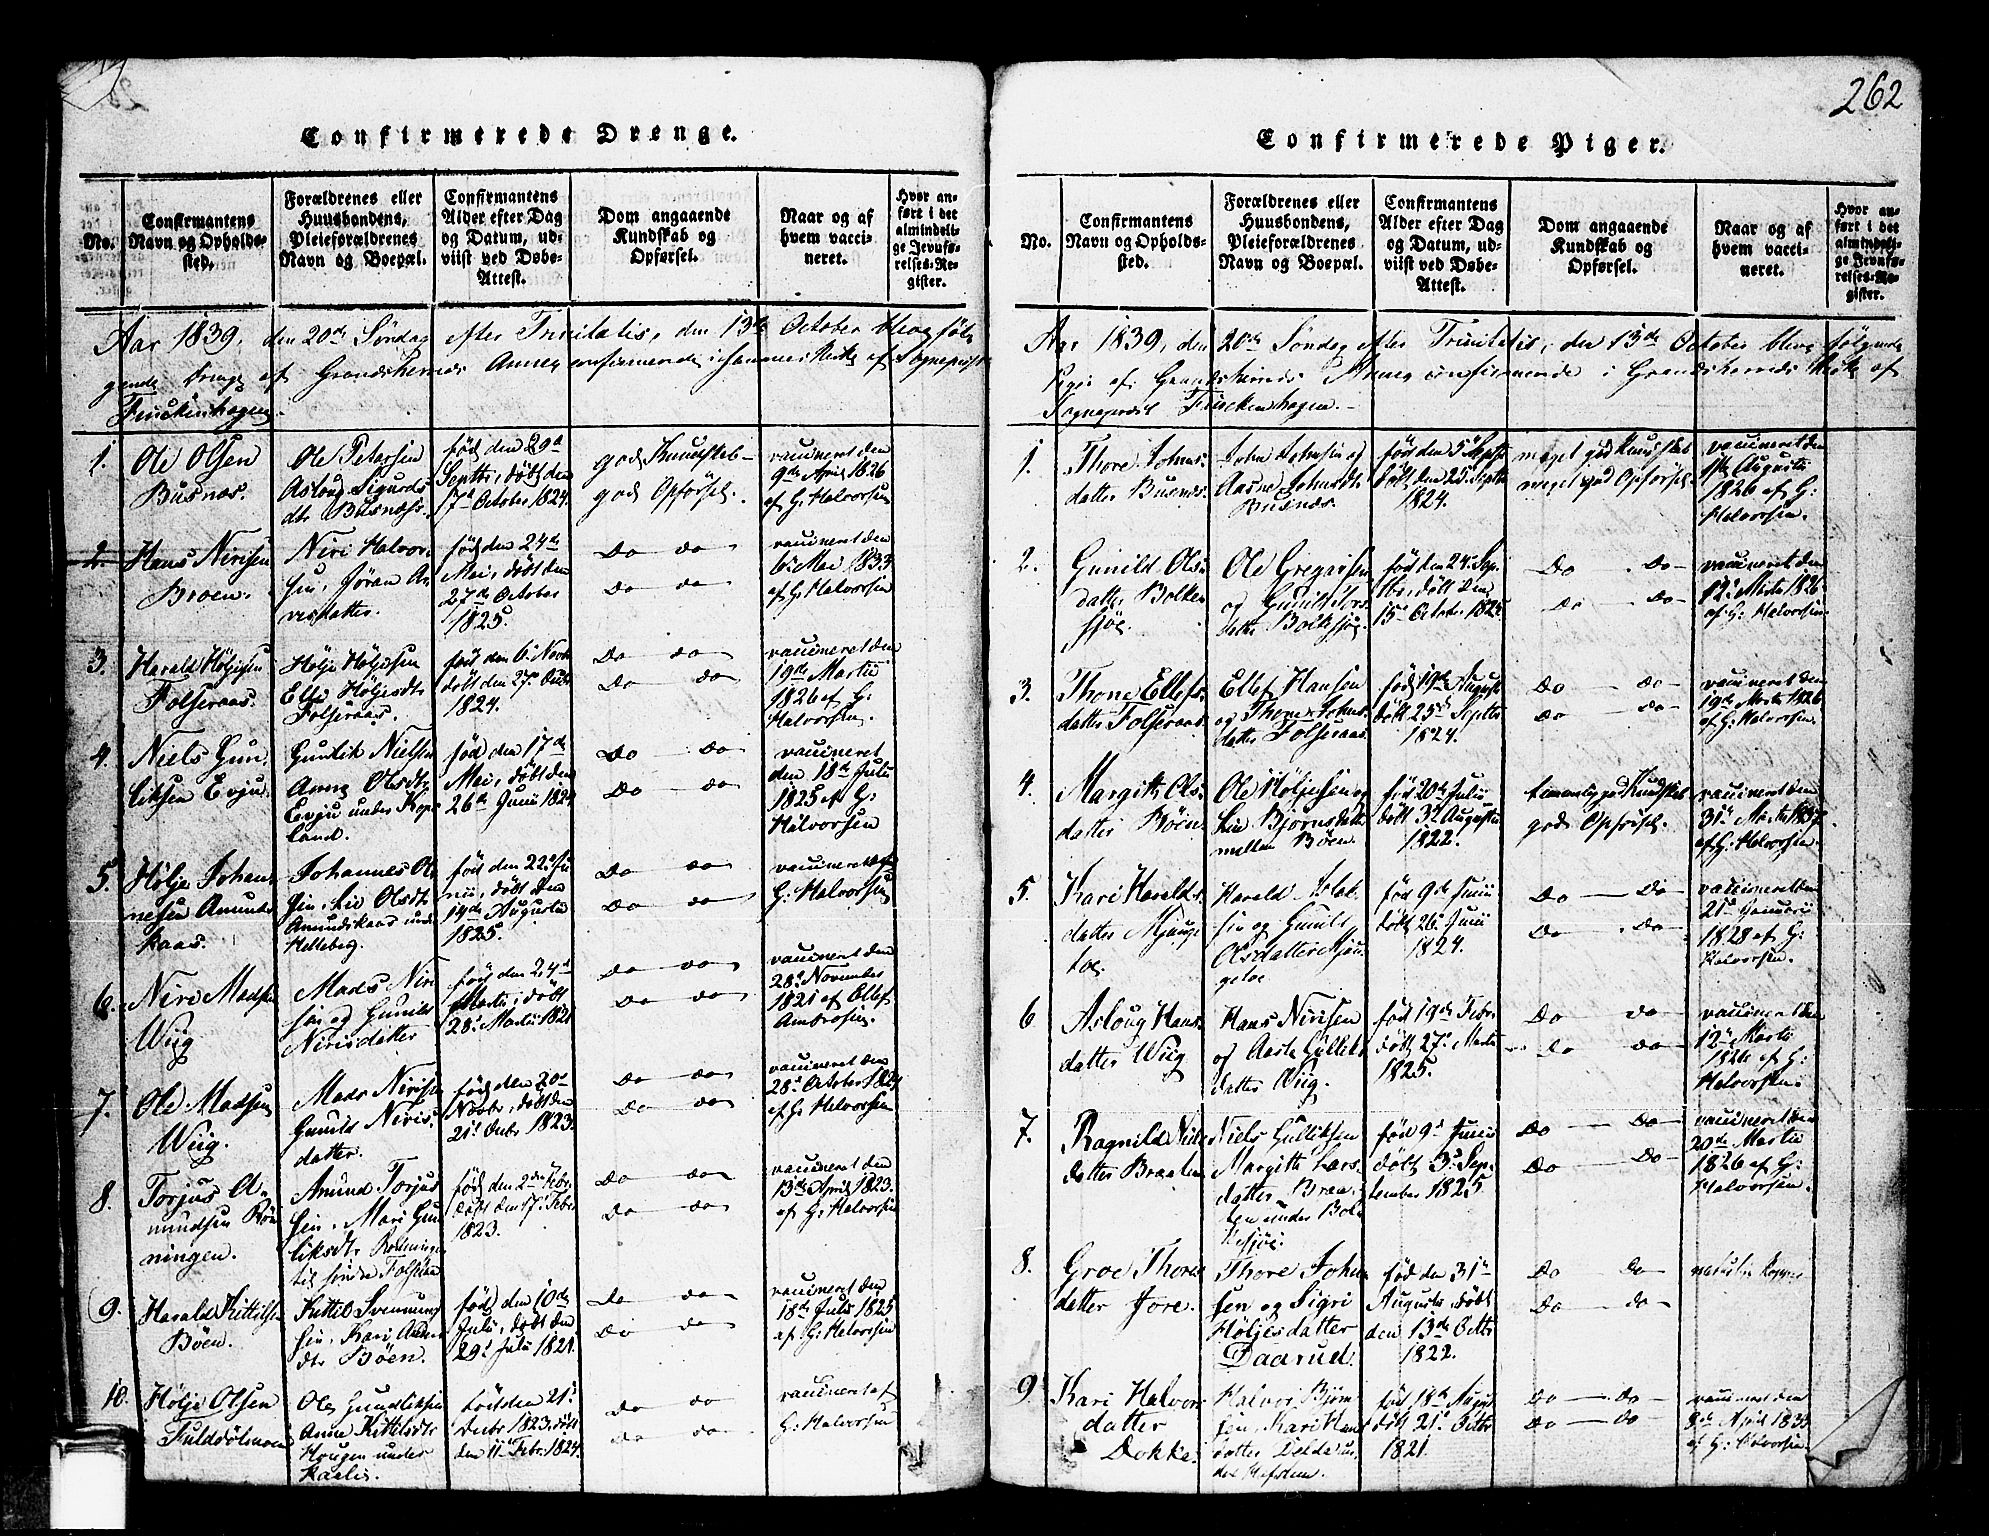 262
Confirmerede Drenge.
No.
Confirmantens Navn og Opholds-sted.
Forældrenes eller Huusbondens, Pleieforældrenes Navn og Boepæl.
Confirmantens Alder efter Dag og Datum, ud-viist ved Døbe-Attest.
Dom angaaende Kundskab og Opførsel.
Naar og af hvem vacci-neret.
Hvor an-ført i det almindeli-ge Jevnfø-relses-Re-gister.
Aar 1839, den 20de Søndag efter Trinitatis, den 13de October bleve føl-
gende Drenge af Grandsherreds Annex confirmerede i sammes Kirke af Sogneprest
Finckenhagen.
1. Ole Olsen
Busnæs.
Ole Petersen
Asloug Sigurds
dtr Busnæs.
fød den 29de
Septbr, døbt den
17de October 1824
god Kundskab
god Opførsel.
vaccineret den
9de April 1826
af G: Halvorsen
2. Hans Nirisen
Broen.
Niri Halvor-
sen, Jøran An
resdatter.
fød den 24de
Mai, døbt den
27de October
1825.
Do Do
Do Do
vaccineret den
6te Mai 1833
af G: Halvorsen
3. Harald Høljesen
Folseraas.
Hølje Høljesen
Elli Høljesdtr
Folseraas.
fød den 6te Novbr
døbt den 27de Octbr
1824.
Do Do
Do Do
vaccineret den
19de Martii
1826 af G:
Halvorsen.
4. Niels Gun
liksen Evju.
Gunlik Nielsen
Anne Olsdtr
Evju under Kop
land.
fød den 17de
Mai, døbt den
26de Junii 1824
Do Do
Do Do
vaccineret
den 18de Julii
1825 af G:
Halvorsen
5. Hølje Johan
nesen Amunds
kaas.
Johannes Ol
sen, Liv Olsdtr
Amundskaas under
Helleberg.
fød den 22de Ju
nii, døbt den
14de Augusti
1825.
Do Do
Do Do
vaccineret af
G: Halvorsen
6. Niri Madsen
Wiig
Mads Niri
sen og Gunild
Nirisdatter
fød den 24de
Martii, døbt
28de Martii 1821
Do Do
Do Do
vaccineret den
28de November
1821 af Ellef
Ambrosen.
7. Ole Madsen
Wiig.
Mads Nirisen
Gunild Niris
datter.
fød den 20de
Novbr, døbt den
21de Decbr 1823.
Do Do
Do Do
vaccineret den
28de October 1824
af G: Halvorsen
8. Torjus A-
mundsen Røn
ningen.
Amund Torjus
sen, Mari Gun
liksdtr Rønningen
til søndre Folseraa
fød den 2den Febr
døbt den 17de Febr
1823.
Do Do
Do Do
vaccineret den
13de April 1823.
af G: Halvorsen
9. Harald Kittilsen
Bøen.
Kittil Svennung
sen, Kari Amun
dtr Bøen.
fød den 10de
Julii, døbt den
29de Julii 1824.
Do Do
Do Do
vaccineret den
18de Julii 1825
af G: Halvorsen
10. Hølje Olsen
Fulddølmoen
Ole Gundliksen
Anne Kittilsdtr
Hougen under
Kaasa.
fød den 21de
Decbr 1823, døbt
den 11te Febr. 1824.
Do Do
Do Do
vaccineret af
G: Halvorsen
Confirmerede Piger.
No.
Confirmantens Navn og Opholds-sted.
Forældrenes eller Huusbondens, Pleieforældrenes Navn og Boepæl.
Confirmantens Alder efter Dag og Datum, ud-viist ved Døbe-Attest.
Dom angaaende Kundskab og Opførsel.
Naar og af hvem vacci-neret.
Hvor an-ført i det almindeli-ge Jevnfø-relses-Re-gister.
Aar 1839, den 20de Søndag efter Trinitatis, den 13de October bleve følgende
Piger af Grandsherreds Annex confirmerede i Grandsherreds Kirke af
Sogneprest Finckenhagen.
1. Thore Johns
datter Busnæs.
John Johnsen og
Aasne Johnsdtr
Busnæs.
fød den 5te Septbr
døbt den 25de Septbr
1824.
meget god Kundskab
meget god Opførsel.
vaccineret den
1ste Augusti
1826 af G:
Halvorsen.
2. Gunild Ols
datter Bolke
sjøe.
Ole Gregarsen
og Gunild Tors
datter Bolkesjøe.
fød den 24de Sep
tbr, døbt den
15de Octobr 1825.
Do Do
Do Do
vaccineret den
12te Martii 1826
af G: Halvorsen
3. Thone Ellefs
datter Folseraas
Ellef Hansen
og Thone Johns
datter Folseraas
fød 19de August
døbt 25de Septbr
1824.
Do Do
Do Do
vaccineret den
19de Martii 1826
af G: Halvorsen.
4. Margith Ols
datter Bøen.
Ole Høljesen og
Liv Bjørnsdatter
mellem Bøen.
fød 20de Julii
døbt 3de Augusti
1822.
temmelig god Kundskab
god Opførsel.
vaccineret den
31te Martii 1837
af G: Halvorsen.
5. Kari Haralds
datter Mjønge
toe.
Harald
sen og Gunild
Olsdatter Mjøn
getoe
fød 9de Junii
døbt 26de Junii
1824.
Do Do
Do Do
vaccineret den
21de Januarii
1828 af G:
Halvorsen.
6 Asloug Hans
datter Wiig
Hans Nirisen
og Aaste Gulliks
datter Wiig.
fød 19de Febr.
døbt 27de Martii
1825.
Do Do
Do Do
vaccineret den
12te Martii
1826 af G:
Halvorsen.
7. Ragnild Niels
datter Braaten
Niels Gulliksen
Margith Lars
datter Braa
ten under Bol
kesjøe.
fød 9de Junii
døbt 3de Sep-
tember 1825
Do Do
Do Do
vaccineret den
20de Martii
1826 af G:
Halvorsen.
8. Groe Thores
datter Jore.
Thore John
sen og Sigri
Høljesdatter
Daarud.
fød den 31te
Augusti, døbt
den 13de Octbr
1822.
Do Do
Do Do
naturlig Kopper
9. Kari Halvors
datter
Dokke.
Halvor Bjørn
sen, Kari Hans
datter
fød 18de August
døbt 21de Octbr
1821.
Do Do
Do Do
vaccineret den
8de April 1833
af G: Halvorsen.